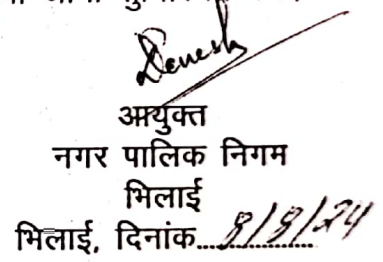 आयुक्त
नगर पालिक निगम
भिलाई
भिलाई, दिनांक....8/8/24